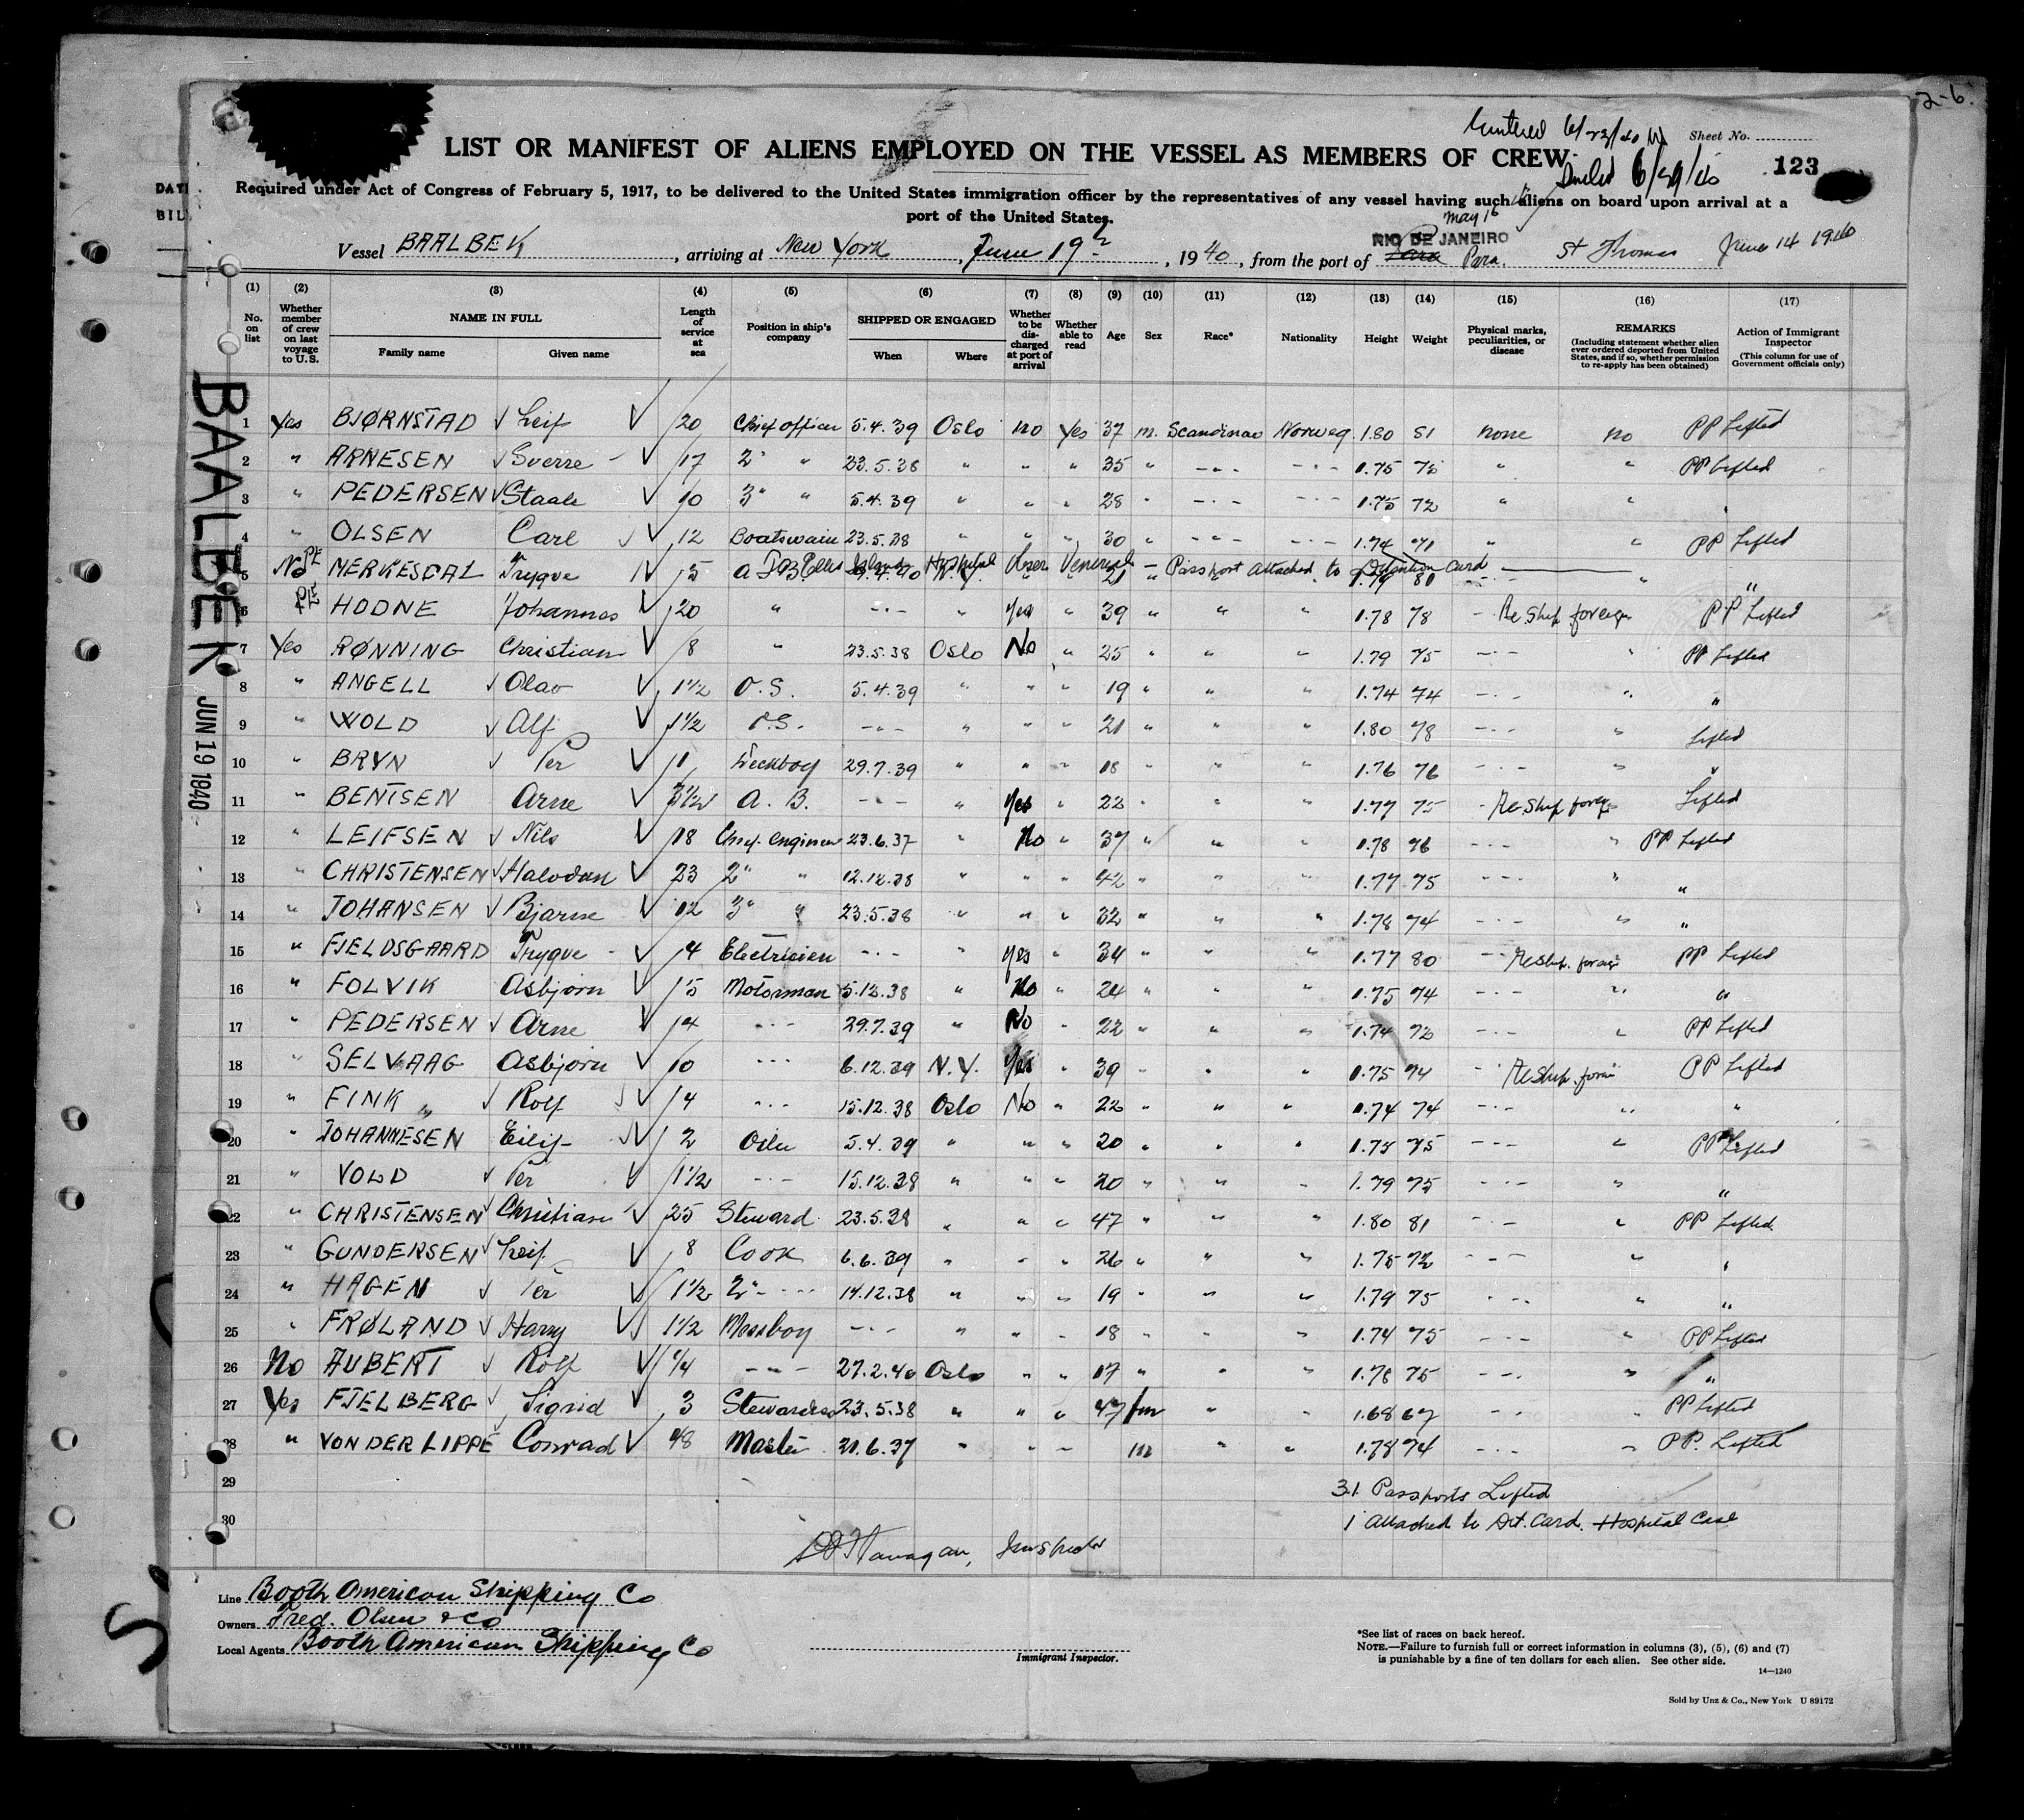 2-6.
Entered 6/23/40
Sheet No.
LIST OR MANIFEST OF ALIENS EMPLOYED ON THE VESSEL AS MEMBERS OF CREW
6/29/40
123
Required under Act of Congress of February 5, 1917, to be delivered to the United States immigration officer by the representatives of any vessel having such aliens on board upon arrival at a
port of the United States.
May 16
Vessel BAALBEK, arriving at New York, June 19, 1940, from the port of RIO DE JANEIRO Para. St Thomas June 14 1940
(1) (2) (3) (4) (5) (6) (7) (8) (9) (10) (11) (12) (13) (14) (15) (16) (17)
No. on list
Whether member of crew on last voyage to U.S.
NAME IN FULL
Family name Given name
Length of service at sea
Position in ship's company
SHIPPED OR ENGAGED
When Where
Whether to be discharged at port of arrival
Whether able to read
Age
Sex
Race*
Nationality
Height
Weight
Physical marks, peculiarities, or disease
REMARKS
(Including statement whether alien ever ordered deported from United States, and if so, whether permission to re-apply has been obtained)
Action of Immigrant Inspector
(This column for use of Government officials only)
BAALBEK JUN 19 1940
1 Yes BJØRNSTAD Leif 20 Chief officer 5.4.39 Oslo no Yes 37 m. Scandinav Norweg. 1.80 81 none no PP Lifted
2 " ARNESEN Sverre 17 2" " 23.5.38 " " " 35 " -"- -"- 1.75 75 " " PP Lifted
3 " PEDERSEN Staale 10 3" " 5.4.39 " " " 28 " -"- -"- 1.75 72 " " "
4 " OLSEN Carl 12 Boatswain 23.5.38 " " " 30 " -"- -"- 1.74 71 " " PP Lifted
5 No MERKESDAL Trygve 5 Ellis Island Hospital Venereal - Passport attached to Detention Card 21 1.79 81 "
6 HODNE Johannes 20 " -"- " Yes " 39 " " " 1.78 78 - Re Ship foreign PP Lifted
7 Yes RØNNING Christian 8 " 23.5.38 Oslo No " 25 " " " 1.79 75 -"- " PP Lifted
8 " ANGELL Olav 1½ O.S. 5.4.39 " " " 19 " " " 1.74 74 -"- " "
9 " WOLD Alf 1½ O.S. -"- " " " 21 " " " 1.80 78 -"- " Lifted
10 " BRYN Per 1 Deckboy 29.7.39 " " " 18 " " " 1.76 76 -"- " "
11 " BENTSEN Arne 3½ A.B. -"- " Yes " 22 " " " 1.77 75 - Re Ship foreign Lifted
12 " LEIFSEN Nils 18 Chief. engineer 23.6.37 " No " 37 " " " 1.78 76 -"- " PP Lifted
13 " CHRISTENSEN Halvdan 23 2" " 12.12.38 " " " 42 " " " 1.77 75 -"- " "
14 " JOHANSEN Bjarne 12 3" " 23.5.38 " " " 32 " " " 1.78 74 -"- " "
15 " FJELDSGAARD Trygve 4 Electricien -"- " Yes " 34 " " " 1.77 80 - Reship. foreign PP Lifted
16 " FOLVIK Asbjorn 5 Motorman 5.12.38 " No " 24 " " " 1.75 74 -"- " "
17 " PEDERSEN Arne 4 -"- 29.7.39 " No " 22 " " " 1.74 72 -"- " PP Lifted
18 " SELVAAG Asbjorn 10 -"- 6.12.39 N.Y. Yes " 39 " " " 1.75 74 - Reship. foreign PP Lifted
19 " FINK Rolf 4 -"- 15.12.38 Oslo No " 22 " " " 1.74 74 -"- " "
20 " JOHANNESEN Eilif 2 Oiler 5.4.39 " " " 20 " " " 1.75 75 -"- " PP Lifted
21 " VOLD Per 1½ -"- 15.12.38 " " " 20 " " " 1.79 75 -"- " "
22 " CHRISTENSEN Christian 25 Steward 23.5.38 " " " 47 " " " 1.80 81 -"- " PP Lifted
23 " GUNDERSEN Leif 8 Cook 6.6.39 " " " 26 " " " 1.75 72 -"- " "
24 " HAGEN Per 1½ 2"- -"- 14.12.38 " " " 19 " " " 1.79 75 -"- " "
25 " FRØLAND Harry 1½ Messboy -"- " " " 18 " " " 1.74 75 -"- " PP Lifted
26 No AUBERT Rolf ¼ -"- 27.2.40 Oslo " " 17 " " " 1.78 75 -"- " "
27 Yes FJELBERG Sigrid 3 Stewardess 23.5.38 " " " 47 fm " " 1.68 67 -"- " PP Lifted
28 " VON DER LIPPE Conrad 48 Master 21.6.37 " " " m " " 1.78 74 -"- " PP. Lifted
29 31 Passports Lifted
30 1 Attached to Det. Card. Hospital Case
Flanagan, Inspector
Line Booth American Shipping Co
Owners Fred. Olsen & Co
Local Agents Booth American Shipping Co
Immigrant Inspector.
*See list of races on back hereof.
NOTE.—Failure to furnish full or correct information in columns (3), (5), (6) and (7)
is punishable by a fine of ten dollars for each alien. See other side.
14—1240
Sold by Unz & Co., New York U 89172